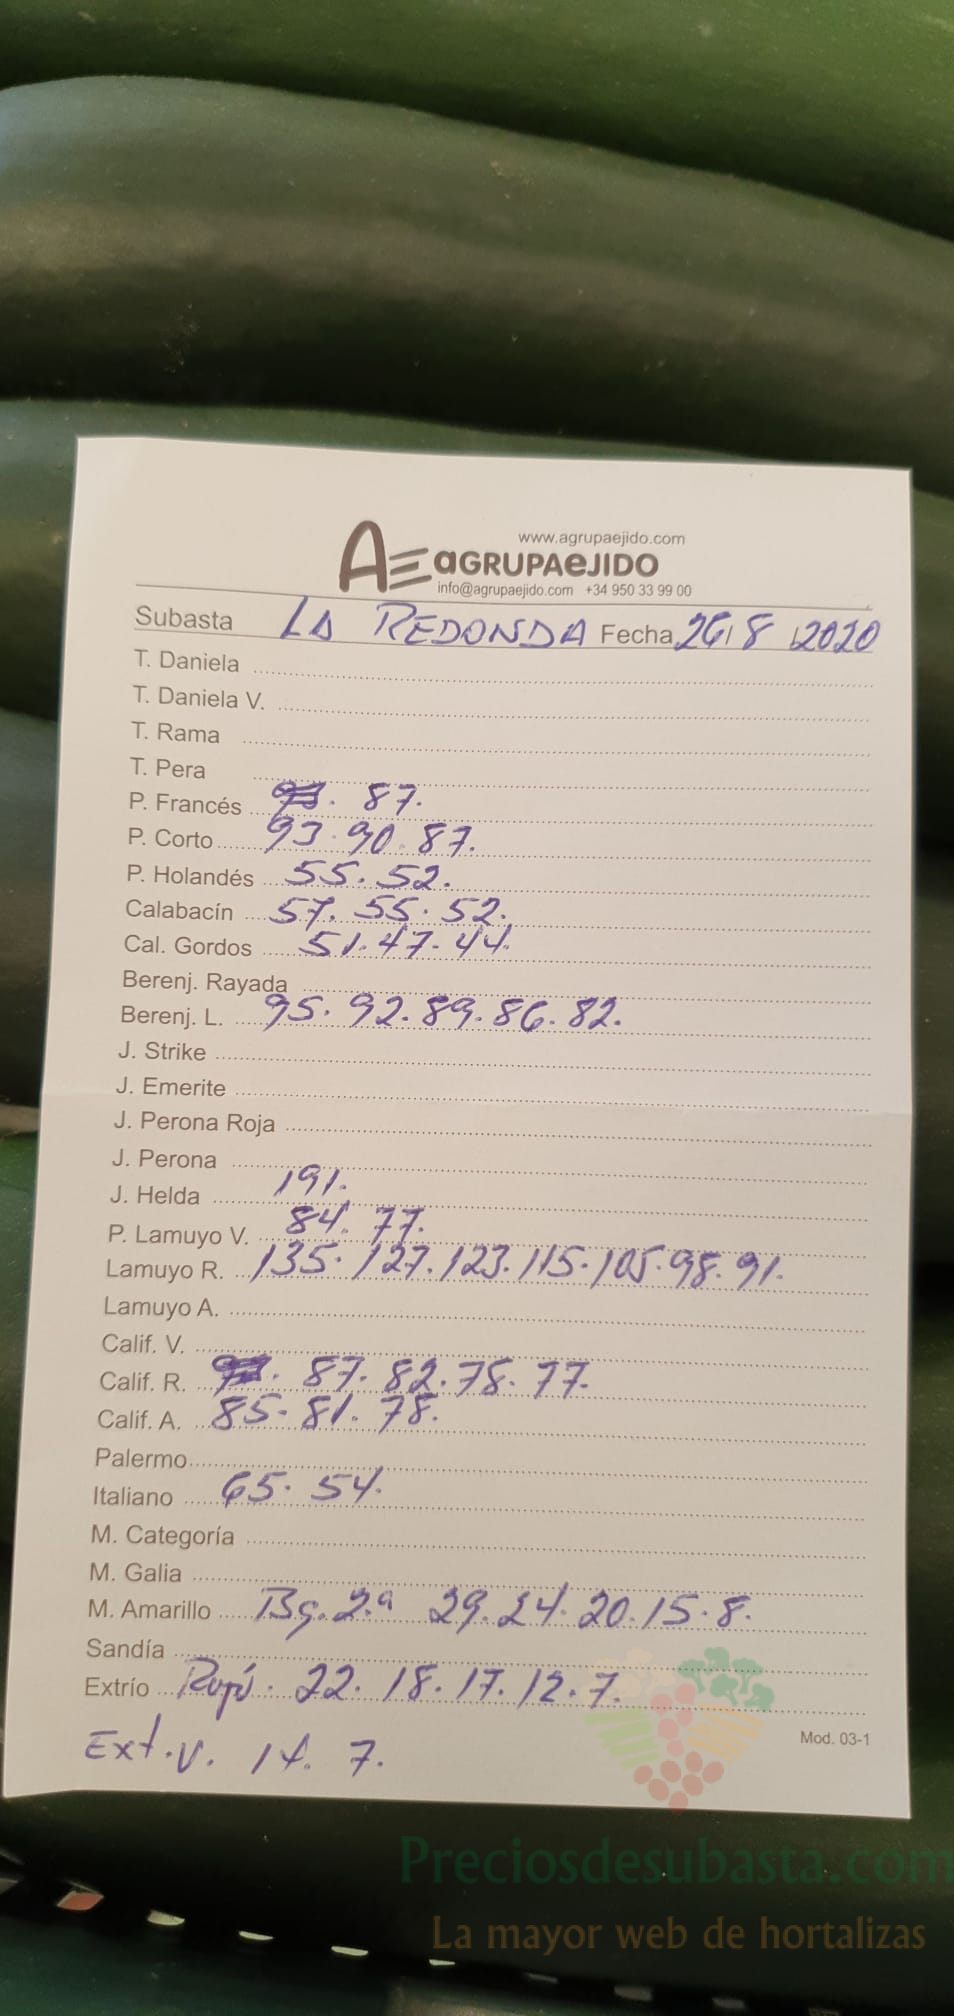 www.agrupaejido.com
AE aGRUPAeJIDO
info@agrupaejido.com +34 950 33 99 00
Subasta LA REDONDA Fecha 26/8/2020
T. Daniela
T. Daniela V.
T. Rama
T. Pera
P. Francés 87.
P. Corto 93. 90. 87.
P. Holandés 55. 52.
Calabacín 57. 55. 52.
Cal. Gordos 51. 47. 44.
Berenj. Rayada
Berenj. L. 95. 92. 89. 86. 82.
J. Strike
J. Emerite
J. Perona Roja
J. Perona
J. Helda 191.
P. Lamuyo V. 84. 77.
Lamuyo R. 135. 127. 123. 115. 105. 98. 91.
Lamuyo A.
Calif. V.
Calif. R. 87. 82. 78. 77.
Calif. A. 85. 81. 78.
Palermo
Italiano 65. 54.
M. Categoría
M. Galia
M. Amarillo Bg. 2.ª 29. 24. 20. 15. 8.
Sandía
Extrío 22. 18. 17. 12. 7.
Mod. 03-1
Ext. V. 14. 7.
Preciosdesubasta.com
La mayor web de hortalizas